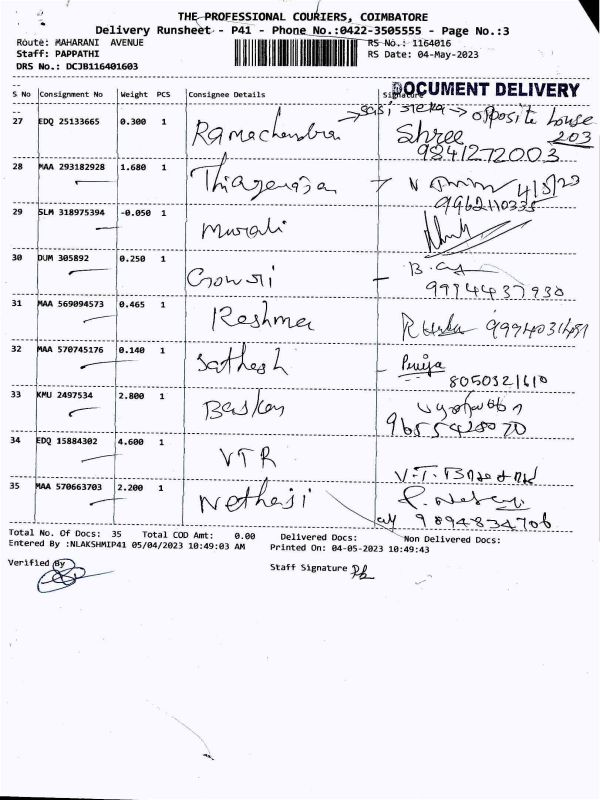 THE PROFESSIONAL COURIERS, COIMBATORE
Delivery Runsheet - P41 - Phone No.:0422-3505555 - Page No.:3
Route: MAHARANI AVENUE
RS No.: 1164016
Staff: PAPPATHI
RS Date: 04-May-2023
DRS No.: DCJB116401603
DOCUMENT DELIVERY
S No Consignment No Weight PCS Consignee Details Signature
→ opposite house
27 EDQ 25133665 0.300 1 Ramachandra Shree 203
9841272003
28 MAA 293182928 1.680 1 Thiagarajan 4/5/23
9962110335
29 SLM 318975394 -0.050 1 Murali
30 DUM 305892 0.250 1 Gowri
9994437930
31 MAA 569094573 0.465 1 Reshma
32 MAA 570745176 0.140 1 Sathesh
8050321610
33 KMU 2497534 2.800 1 Baskar
34 EDQ 15884302 4.600 1 VTR
35 MAA 570663703 2.200 1 Nethaji
9894834706
Total No. Of Docs: 35 Total COD Amt: 0.00 Delivered Docs: Non Delivered Docs:
Entered By :NLAKSHMIP41 05/04/2023 10:49:03 AM Printed On: 04-05-2023 10:49:43
Verified By
Staff Signature